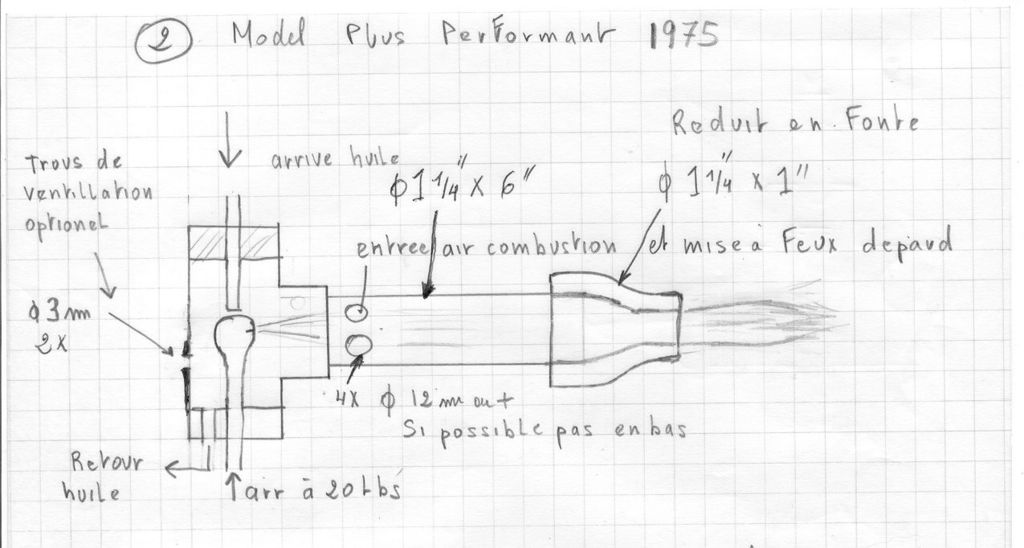 2 Model Plus Performant 1975
Reduit en Fonte
Trous de
ventillation
optionel
arrive huile
ϕ1 1/4" x 6"
ϕ 1 1/4" x 1"
entree air combustion et mise à Feux depard
ϕ3mm
2x
4x ϕ 12 mm ou +
Si possible pas en bas
Retour
huile
air à 20 Lbs